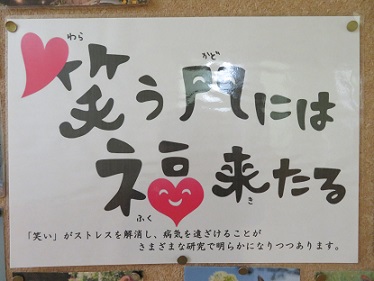 わら かど
笑う門には
福来たる
ふく き
「笑い」がストレスを解消し、病気を遠ざけることが
さまざまな研究で明らかになりつつあります。